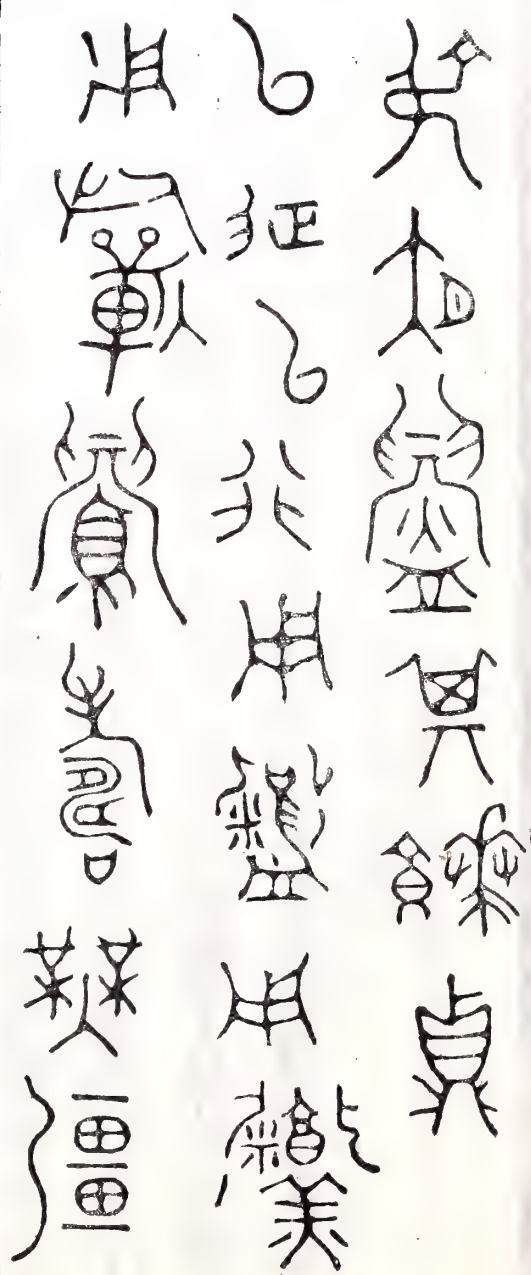 叔夜鑄其饙鼎
以征以行用用羹
用蘄眉壽無疆